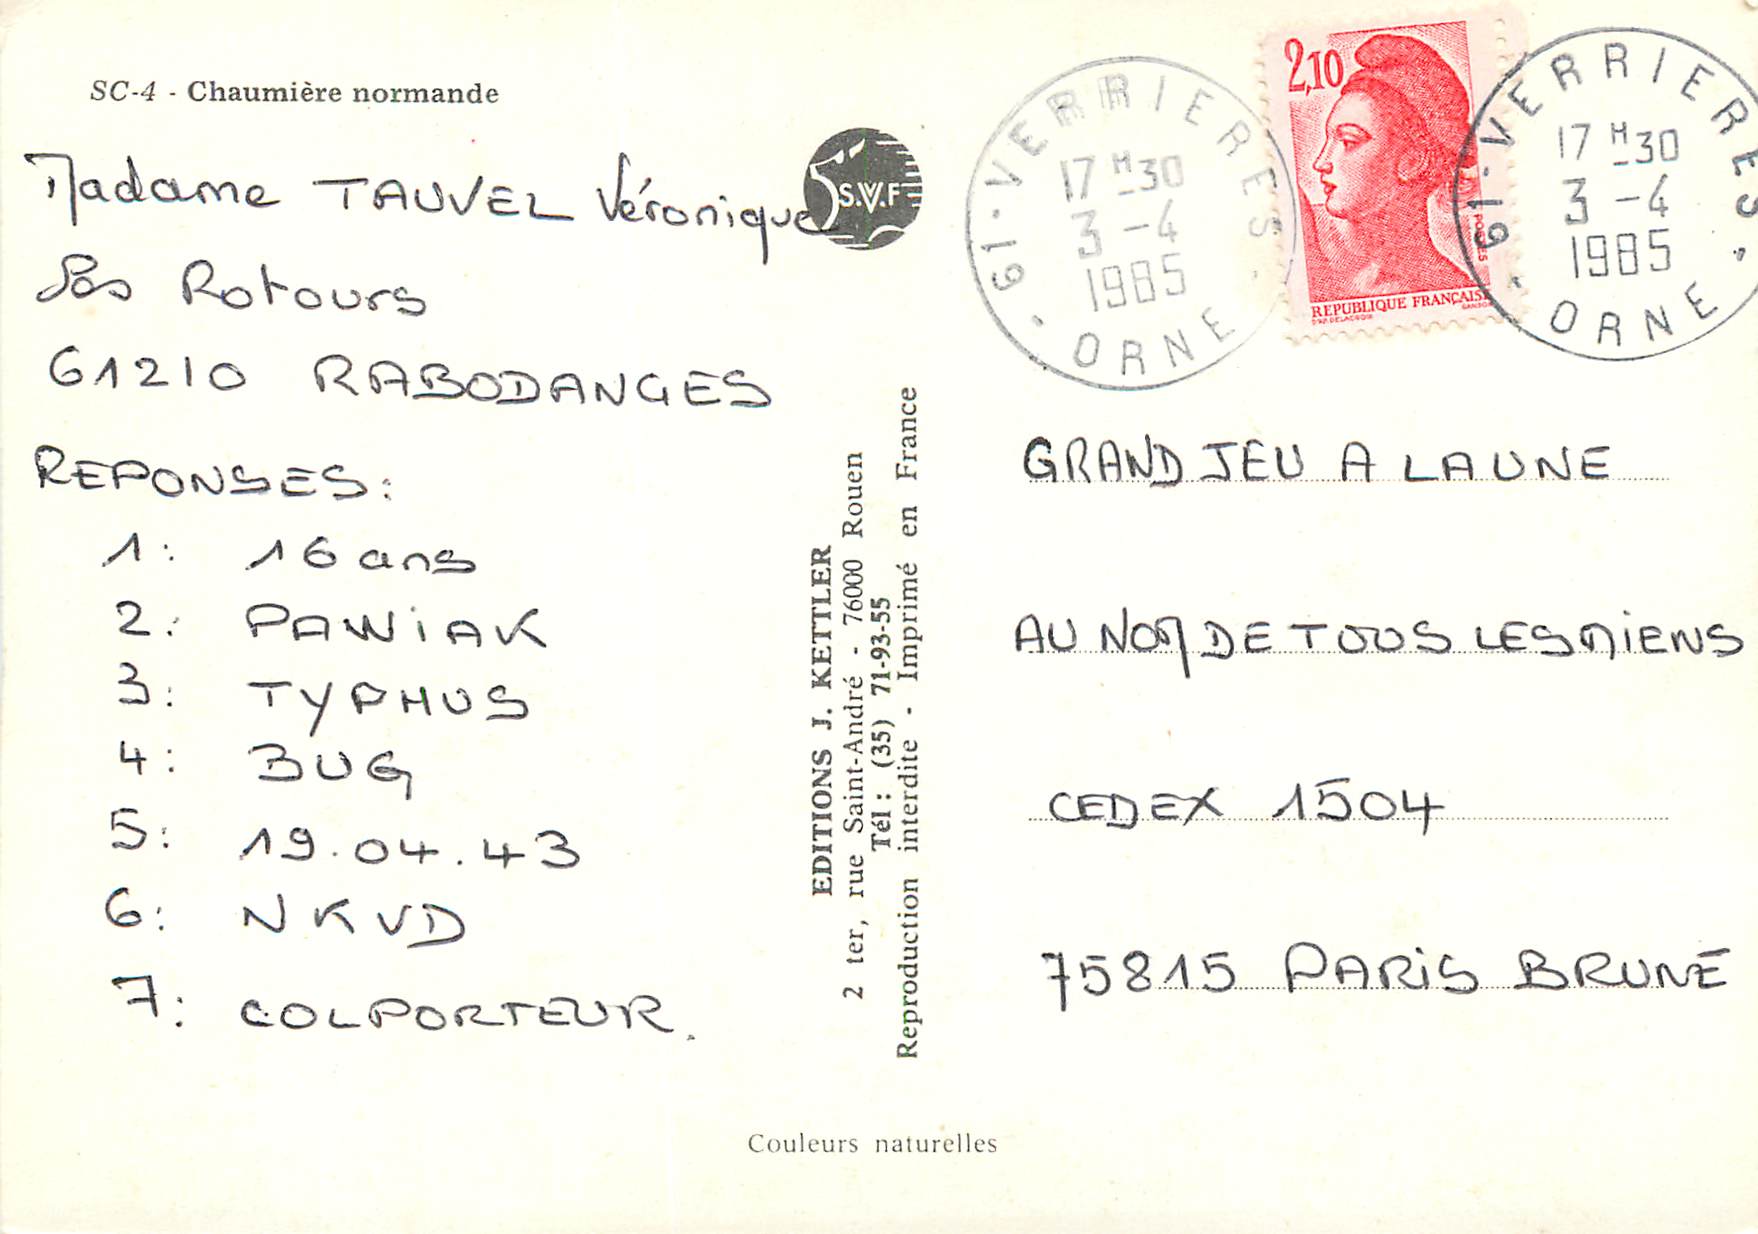 SC-4 - Chaumière normande
Madame TAUVEL Véronique
Les Rotours
61210 RABODANGES
REPONSES:
1: 16 ans
2: PAWIAK
3: TYPHUS
4: BUG
5: 19.04.43
6: NKVD
7: COLPORTEUR.
S.V.F
EDITIONS J. KETTLER
2 ter, rue Saint-André - 76000 Rouen
Tél : (35) 71-93-55
Reproduction interdite - Imprimé en France
Couleurs naturelles
61-VERRIERES
17 H 30
3 - 4
1985
ORNE
2,10
POSTES
REPUBLIQUE FRANÇAISE
D'AP. DELACROIX
GANDON
61-VERRIERES
17 H 30
3 - 4
1985
ORNE
GRAND JEU A LA UNE
AU NOM DE TOUS LES MIENS
CEDEX 1504
75815 PARIS BRUNE